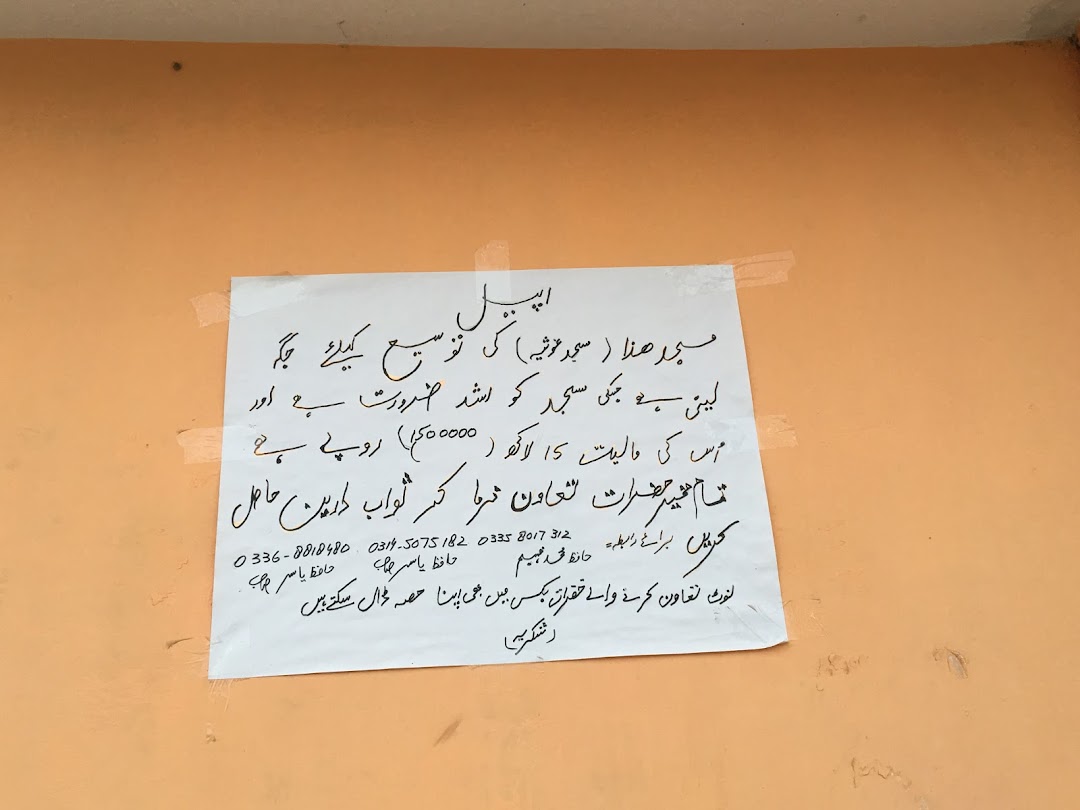 اپیل
مسجد ھذا ( مسجد غوثیہ ) کی توسیع کیلئے جگہ
لینی ہے جسکی مسجد کو اشد ضرورت ہے اور
اس کی مالیت 15 لاکھ ( 1500000 ) روپے ہے
تمام مخیر حضرات تعاون فرما کر ثواب دارین حاصل
کریں برائے رابطہ = 0335 8017312 0314-5075182 0336-8818480
حافظ محمد فہیم حافظ یاسر صاحب حافظ یاسر صاحب
نوٹ تعاون کرنے والے حضرات بکس میں بھی اپنا حصہ ڈال سکتے ہیں
شکریہ